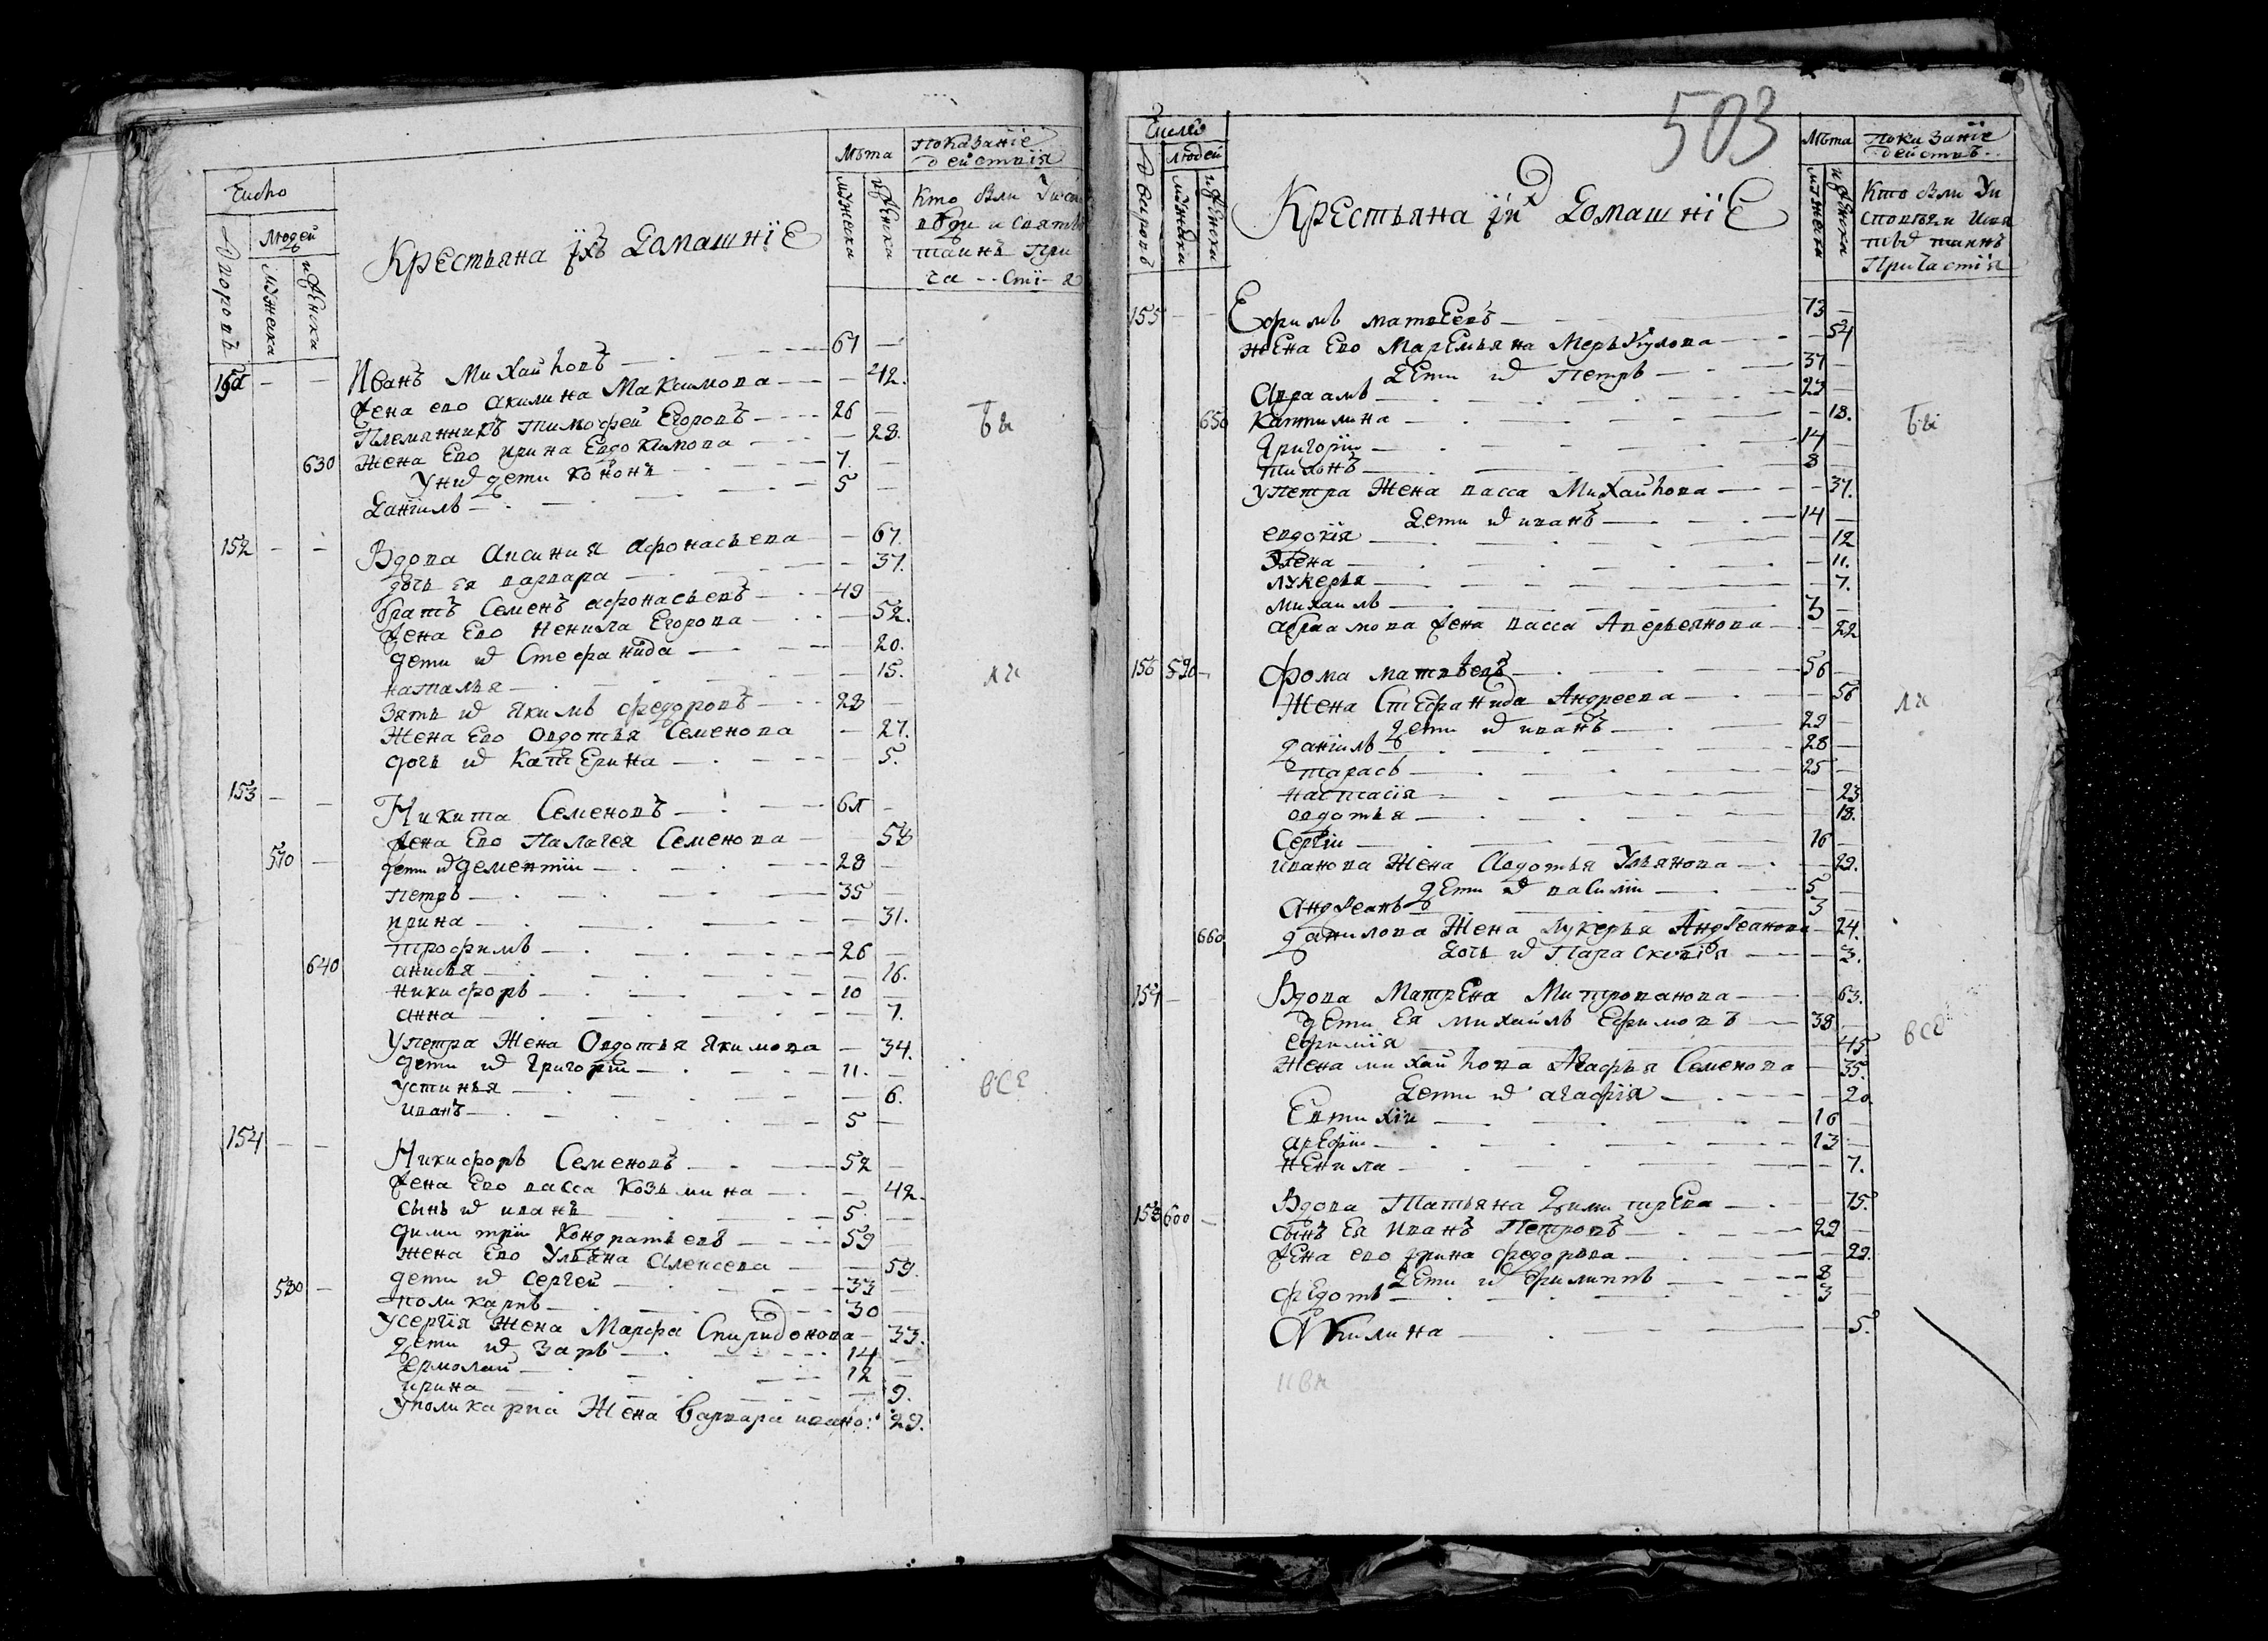 Число
Дворовъ
Людей
мужеска
женска
Крестьяна ихъ Домашніе
Лѣта
мужеска
женска
Показаніе действія
Кто были Уиспо
вѣди и святы
таинъ При
ча -- сті- я
151 — — Иванъ Михайловъ — 61 —
Жена его Акилина Максимова — — 42.
Племянникъ тимофей Егоровъ — 26 —
630 Жена Его ирина Евдокимова — — 28.
У них дети Конон — 7. —
Даніилъ — 5 —
152 — — Вдова Аксиния Афонасьева — — 67.
дочь ея варвара — — 37.
братъ Семенъ афонасьевъ — 49 —
Жена Ево Ненила Егорова — — 52.
дети их Стефанида — — 20.
наталья — — 15.
зять их Якимъ федоровъ — 28 —
Жена Ево Овдотья Семенова — 27.
дочь их Катерина — — 5.
153 — — Никита Семеновъ — —
Жена Ево Палагея Семенова — 58
— дети их дементіи — 28 —
Петръ — 35 —
ирина — — 31.
Трофимъ — 26 —
640 анисья — — 16.
Никифоръ — 10 —
анна — — 7.
У петра Жена Овдотья Якимова — 34.
дети их Григоріи — 11. —
Устинья — — 6.
иванъ — 5 —
154 — — Никифоръ Семеновъ — 52 —
Жена Ево васса Козьмина — — 42.
сынъ их иванъ — 5. —
димитріи Кондратьевъ — 59 —
жена Ево Ульяна Алексева — — 59.
580 — дети их Сергей — 33 —
поликарпъ — 30 —
У сергія Жена Марфа Спиридонова — 33.
дети их Заръ — 14 —
Ермолаи — 12 —
ирина — — 9.
У поликарпа Жена Варвара ивано: 29.
бы
ли
все
503
Число
Дворовъ
людей
мужеска
женска
Крестьяна их Домашніе
Лѣта
мужеска
женска
Показаніе действ.
Кто были Уи
споведи исвя
тых таинъ
Причастія
155 — — Ефимъ матвеевъ — 73 —
жена Ево Маремьяна Меркулова — — 54
Дети их Петръ — 37 —
Авраамъ — 23 —
650 Катилина — — 18.
Григоріи — 14 —
тихонъ — 8 —
У петра Жена васса Михайлова — — 37.
Дети их иванъ — 14 —
евдокія — — 12
Елена — — 11.
лукерья — — 7.
михаилъ — 3 —
абраамова жена васса Аверьянова — — 22
156 590 — Фома матвѣевъ — 56 —
Жена Стефанида Андреева — — 56
дети их иванъ — 29 —
даніилъ — 28 —
тарасъ — 25 —
настасія — — 23
овдотья — — 18.
Сергіи — 16 —
иванова Жена Авдотья Ульянова — — 29.
дети их василіи — 5 —
Андреанъ — 3 —
660 данилова Жена Лукерья Андреанова — 24.
дочь их Параскевія — — 3.
157 — Вдова Матрена Митрованова — — 63.
дети Ея михаилъ Ефимовъ — 38 —
ефимія — — 45
жена михайлова Агафья Семенова — 35.
Дети их агафія — — 20
Евтихіи — 16 —
арефіи — 13 —
ненила — — 7.
158 600 — Вдова Татьяна Димитрева — — 75.
сынъ Ея Иванъ Петровъ — 29 —
жена ево ирина федорова — — 29.
Дети их филиппъ — 8 —
федотъ — 3 —
Акилина — — 5.
бы
ли
все